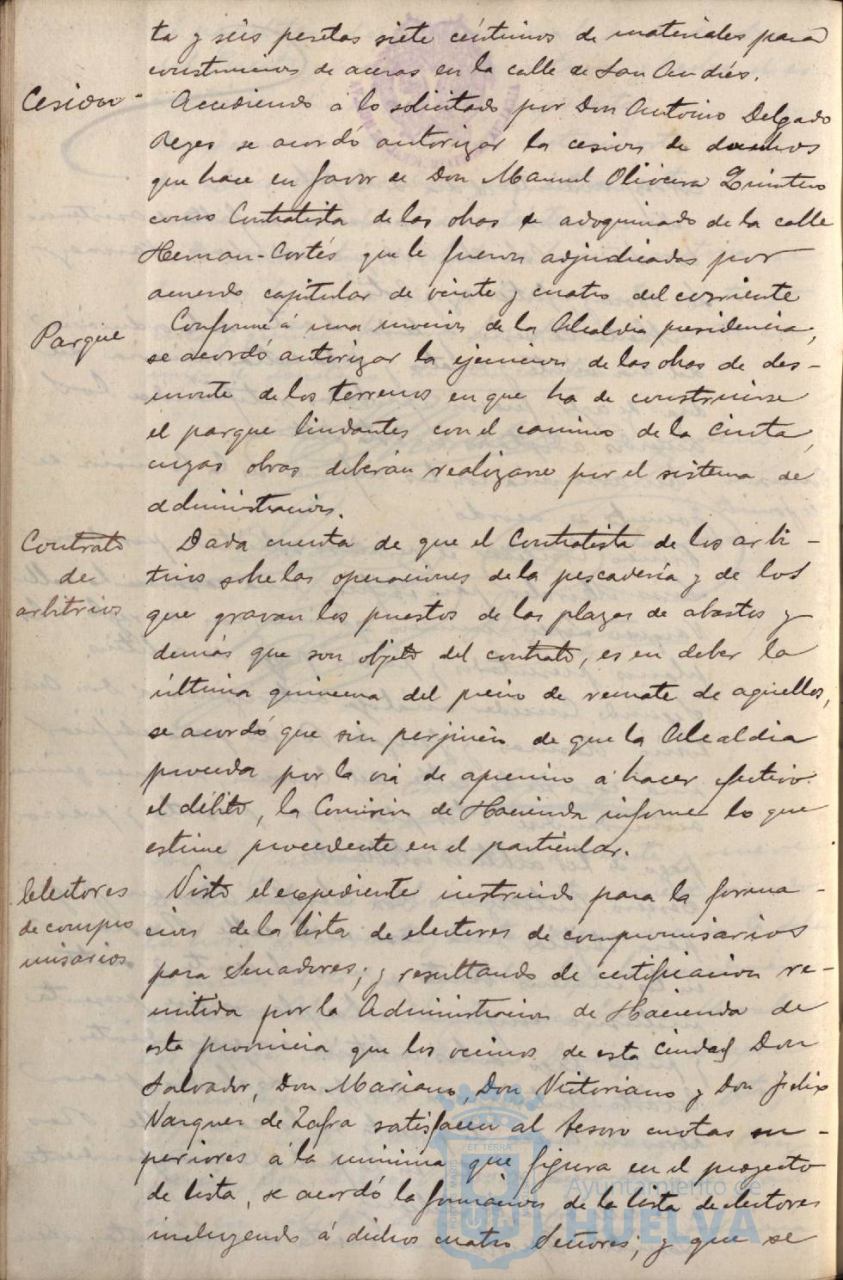 ta y séis pesetas siete céntimos de materiales para
construccion de aceras en la calle de San Andrés.
Cesion -
Accediendo á lo solicitado por Don Antonio Delgado
Reyes se acordó autorizar la cesion de derechos
que hace en favor de Don Manuel Oliveira Quintero
como Contratista de las obras de adoquinado de la calle
Hernan-Cortés que le fueron adjudicadas por
acuerdo capitular de veinte y cuatro del corriente
Parque
Conforme á una mocion de la Alcaldia presidencia,
se acordó autorizar la ejecucion de las obras de des-
monte de los terrenos en que ha de construirse
el parque lindantes con el camino de la Cinta,
cuyas obras deberán realizarse por el sistema de
administracion.
Contrato
de
arbitrios
Dada cuenta de que el Contratista de los arbi-
trios sobre las operaciones de la pescadería y de los
que gravan los puestos de las plazas de abastos y
demás que son objeto del contrato, es en deber la
última quincena del precio de remate de aquellos,
se acordó que sin perjuicio de que la Alcaldia
proceda por la via de apremio á hacer efectivo
el débito, la Comision de Hacienda informe lo que
estime procedente en el particular.
Electores
de compro
misarios
Visto el expediente instruido para la forma-
cion de la lista de electores de compromisarios
para Senadores; y resultando de certificacion re-
mitida por la Administracion de Hacienda de
esta provincia que los vecinos de esta Ciudad Don
Salvador, Don Mariano, Don Victoriano y Don Felix
Vazquez de Zafra satisfacen al Tesoro cuotas su-
periores á la minima que figura en el proyecto
de lista, se acordó la formacion de la lista de electores
incluyendo á dichos cuatro Señores; y que se
Ayuntamiento de
HUELVA